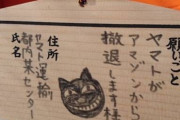 願いごと
ヤマトが
アマゾンから
撤退します様
住所
ヤマト運輸
都内某センター
氏名